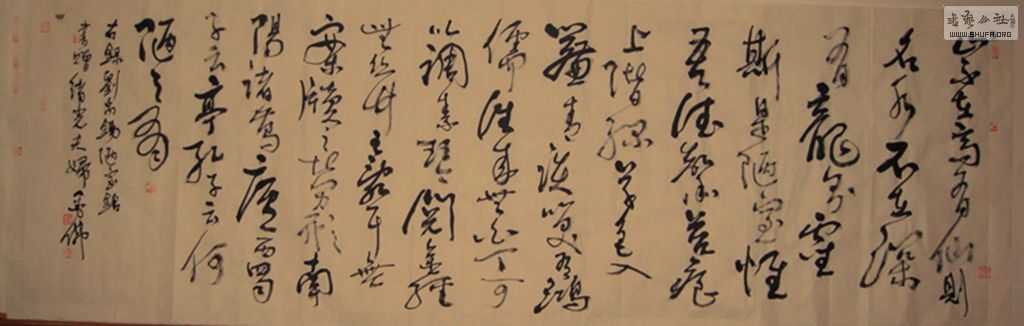 山不在高有仙則
名水不在深
有龍則靈
斯是陋室惟
吾德馨苔痕
上階綠草色入
簾青談笑有鴻
儒往來無白丁可
以調素琴閱金經
無絲竹之亂耳無
案牘之勞形南
陽諸葛廬西蜀
子云亭孔子云何
陋之有
右録劉禹錫陋室銘
書贈緒光夫婦
書藝公社
WWW.SHUFA.ORG